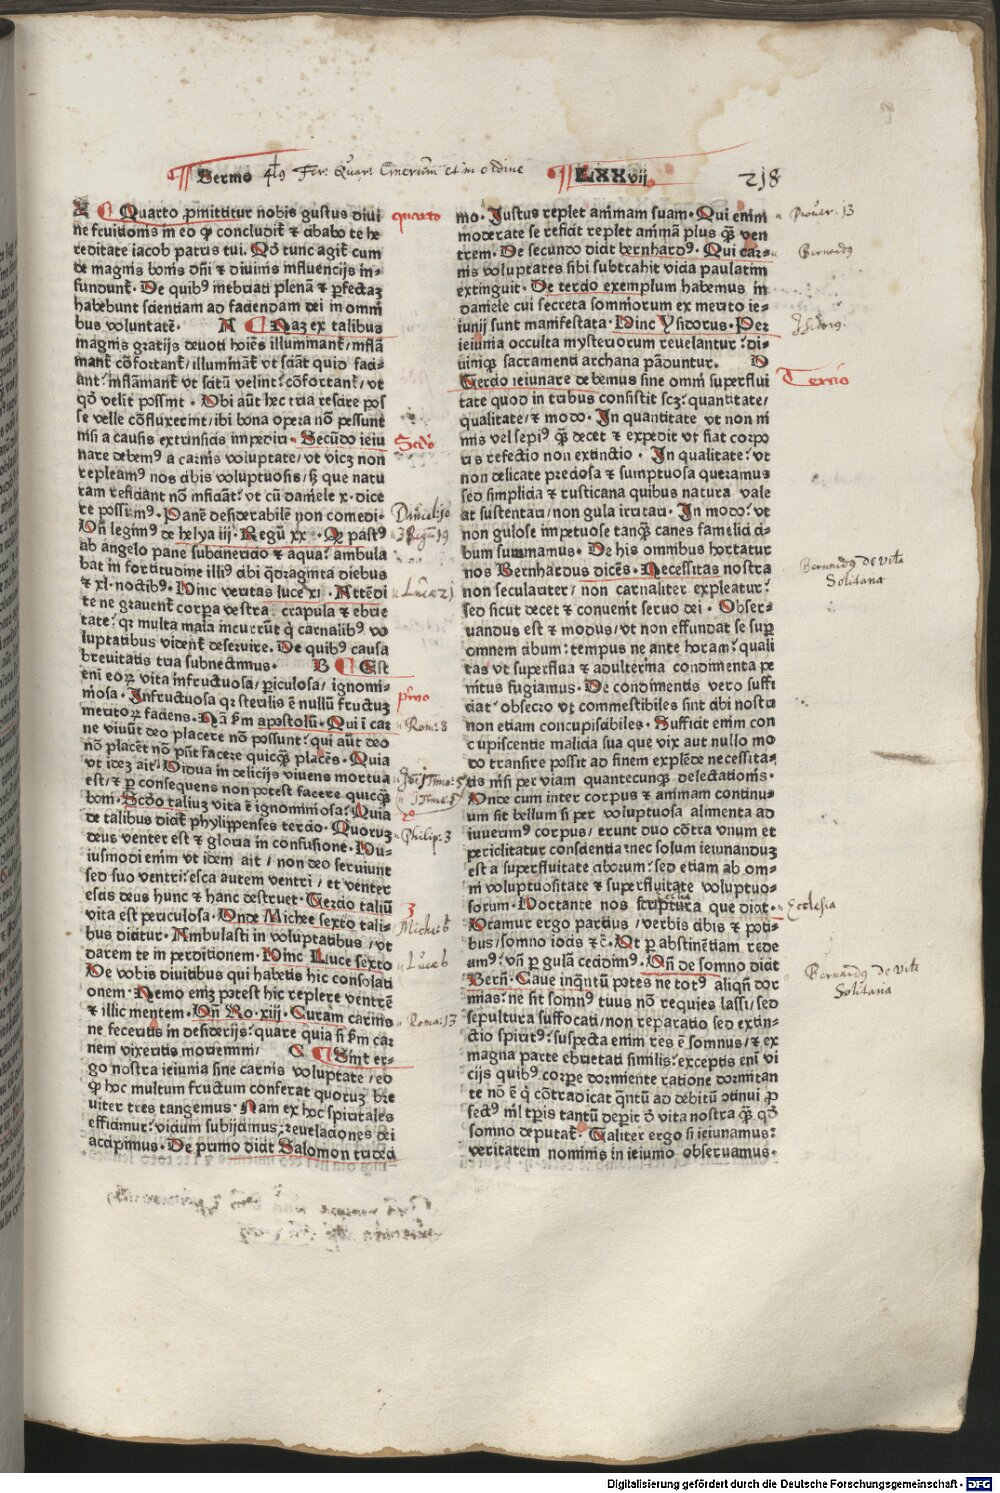 Sermo 4tꝯ Fer: Quar: Cinerum et in ordine LXXvij 218
Quarto ꝓmittitur nobis gustus diui
ne fruitionis in eo ꝙ concludit᷑ ⁊ cibabo te he
reditate iacob patris tui. Qð tunc agit᷑ cum
de magnis bonis dñi ⁊ diuinis influencijs in⸗
fundunt᷑. De quibꝰ inebriati plena ⁊ ꝑfectaꝫ
habebunt scientiam ad faciendam dei in omni
bus voluntatē. A Naꝫ ex talibus
magnis gratijs deuoti hoīes illuminant᷑/ inflā
mant᷑ cōfortant᷑/ illuminant᷑ vt sciāt quid faci⸗
ant: inflāmant᷑ vt scitū velint: cōfortant᷑/ vt
qð velit possint. Vbi aūt hec tria
se velle cōfluxerint/ ibi bona opera nō possunt
nisi a causis extrinsicis impediri. Secūdo ieiu
nare debemꝰ a carnis voluptate/ vt vicꝫ non
repleamꝰ nos cibis voluptuosis/ sꝫ que natu
ram reficiant nō inficiāt: vt cū daniele x. dice
re possimꝰ. Panē desiderabilē non comedi.
Vñ legimꝰ de helya iij. Regū xx. Qꝛ pastꝰ
ab angelo pane subcinericio ⁊ aqua: ambula
bat in fortitudine illiꝰ cibi qͣdraginta diebus
⁊ xl. noctibꝰ. Hinc veritas luce xi. Attēdi
te ne grauent᷑ corpa vestra. crapula ⁊ ebrie
tate: qꝛ multa mala incurrūt qͥ carnalibꝰ vo
luptatibus vident᷑ deseruire. De quibꝰ causa
breuitatis tria subnectimus. B Est
eni eoꝝ vita infructuosa/ ꝑiculosa/ ignomi⸗
niosa. Infructuosa qꝛ sterilis ē nullū fructuꝫ
meritoꝝ faciens. Nā ẜm apostolū. Qui ī car
ne viuūt deo placere nō possunt: qui aūt deo
nō placēt nō pñt facere quicqͣꝫ placēs. Quia
vt idez ait. Vidua in delicijs viuens mortua
est/ ⁊ ꝑ consequens non potest facere quicqͣꝫ
boni. Scđo taliuꝫ vita ē ignominiosa: Quia
de talibus dicit᷑ phylippenses tercio. Quoruꝫ
deus venter est ⁊ gloria in confusione. Hu⸗
iusmodi enim vt idem ait/ non deo seruiunt
sed suo ventri: esca autem ventri/ et venter
escis deus hunc ⁊ hanc destruet. Tercio taliū
vita est periculosa. Vnde Michee sexto tali⸗
bus dicitur. Ambulasti in voluptatibus/ vt
darem te in perditionem. Hinc Luce sexto
Ve vobis diuitibus qui habetis hic consolati
onem. Nemo emꝫ potest hic replere ventrē
⁊ illic mentem. Vñ Ro. xiij. Curam carnis
ne feceritis in desiderijs: quare quia si ẜm car
nem vixeritis moriemini/ C Sint er⸗
go nostra ieiunia sine carnis voluptate/ eo
ꝙ hoc multum fructum conferat quoruꝫ bre
uiter tres tangemus. Nam ex hoc spiritales
efficimur: vicium subijcimus: reuelaciones dei
accipimus. De primo dicit Salomon
quarto
Scđo
Daniel: 10
3 Regū 19
Luce 21
pͥmo
Rom: 8
1 Timo: 5
2º
Philip: 3
3
Michee 6
Luce 6
Roma: 13
mo. Justus replet animam suam. Qui enim
moderate se reficit replet animā plus qͣꝫ ven
trem. De secundo dicit bernhardꝰ. Qui car⸗
nis voluptates sibi subtrahit vicia paulatim
extinguit. De tercio exemplum habemus in
daniele cui secreta somniorum ex merito ie⸗
iunij sunt manifestata. Hinc Ysidorus. Per
ieiunia occulta mysteriorum reuelantur: di⸗
uinique sacramenti archana pāduntur. D
Tercio ieiunare debemus sine omni superflui
tate quod in tribus consistit scꝫ: quantitate/
qualitate/ ⁊ modo. In quantitate vt non ni
mis vel sepiꝰ qͣꝫ decet ⁊ expedit vt fiat corpo
ris refectio non extinctio. In qualitate: vt
non delicate preciosa ⁊ sumptuosa queramus
sed simplicia ⁊ rusticana quibus natura vale
at sustentari/ non gula irritari. In modo: vt
non gulose impetuose tanqͣꝫ canes famelici ci⸗
bum summamus. De his omnibus hortatur
nos Bernhardus dicēs. Necessitas nostra
non seculariter/ non carnaliter expleatur:
sed sicut decet ⁊ conuenit seruo dei. Obser⸗
uandus est ⁊ modus/ vt non effundat se suꝑ
omnem cibum: tempus ne ante horam: quali
tas vt superflua ⁊ adulterina condimenta pe
nitus fugiamus. De condimentis vero suffi
ciat: obsecro vt commestibiles sint cibi nostri
non etiam concupiscibiles. Sufficit enim con
cupiscentie malicia sua que vix aut nullo mo
do transire possit ad finem explēde necessita⸗
tis nisi per viam quantecunqꝫ delectationis.
Vnde cum inter corpus ⁊ animam continu⸗
um sit bellum si per voluptuosa alimenta ad
iuuerimꝰ corpus/ erunt duo cōtra vnum et
periclitatur conscientia: nec solum ieiunanduꝫ
est a superfluitate ciborum: sed etiam ab om⸗
ni voluptuositate ⁊ superfluitate voluptuo⸗
sorum. Hortante nos scriptura que dicit.
Vtamur ergo parcius/ verbis cibis ⁊ poti⸗
bus/ somno iocis ⁊ꝛc. Vt ꝑ abstinētiam rede
amꝰ: vñ ꝑ gulā cecidimꝰ. Vñ de somno dicit
Berñ. Caue inqͣntū potes ne totꝰ aliqñ dor
mias: ne sit somnꝰ tuus nō requies lassi/ sed
sepultura suffocati/ non reparatio sed extin⸗
ctio spiritꝰ: suspecta enim res ē somnus/ ⁊ ex
magna parte ebrietati similis: exceptis enī vi
cijs quibꝰ corpe dormiente ratione dormitan
te nō ē qͥ cōtradicat qͣntū ad debitū ꝯtinui ꝓ
fectꝰ nl̄ tꝑis tantū deꝑit ð vita nostra qͣꝫ qð
somno deputat᷑. Taliter ergo si ieiunamus:
veritatem nominis in ieiunio obseruamus.
Prouer: 13
Bernardꝯ
Jsidorꝯ
Tertio
Bernardꝯ de vita
Solitaria
Ecclesia
Bernardꝯ de vita
Solitaria
Digitalisierung gefördert durch die Deutsche Forschungsgemeinschaft - DFG